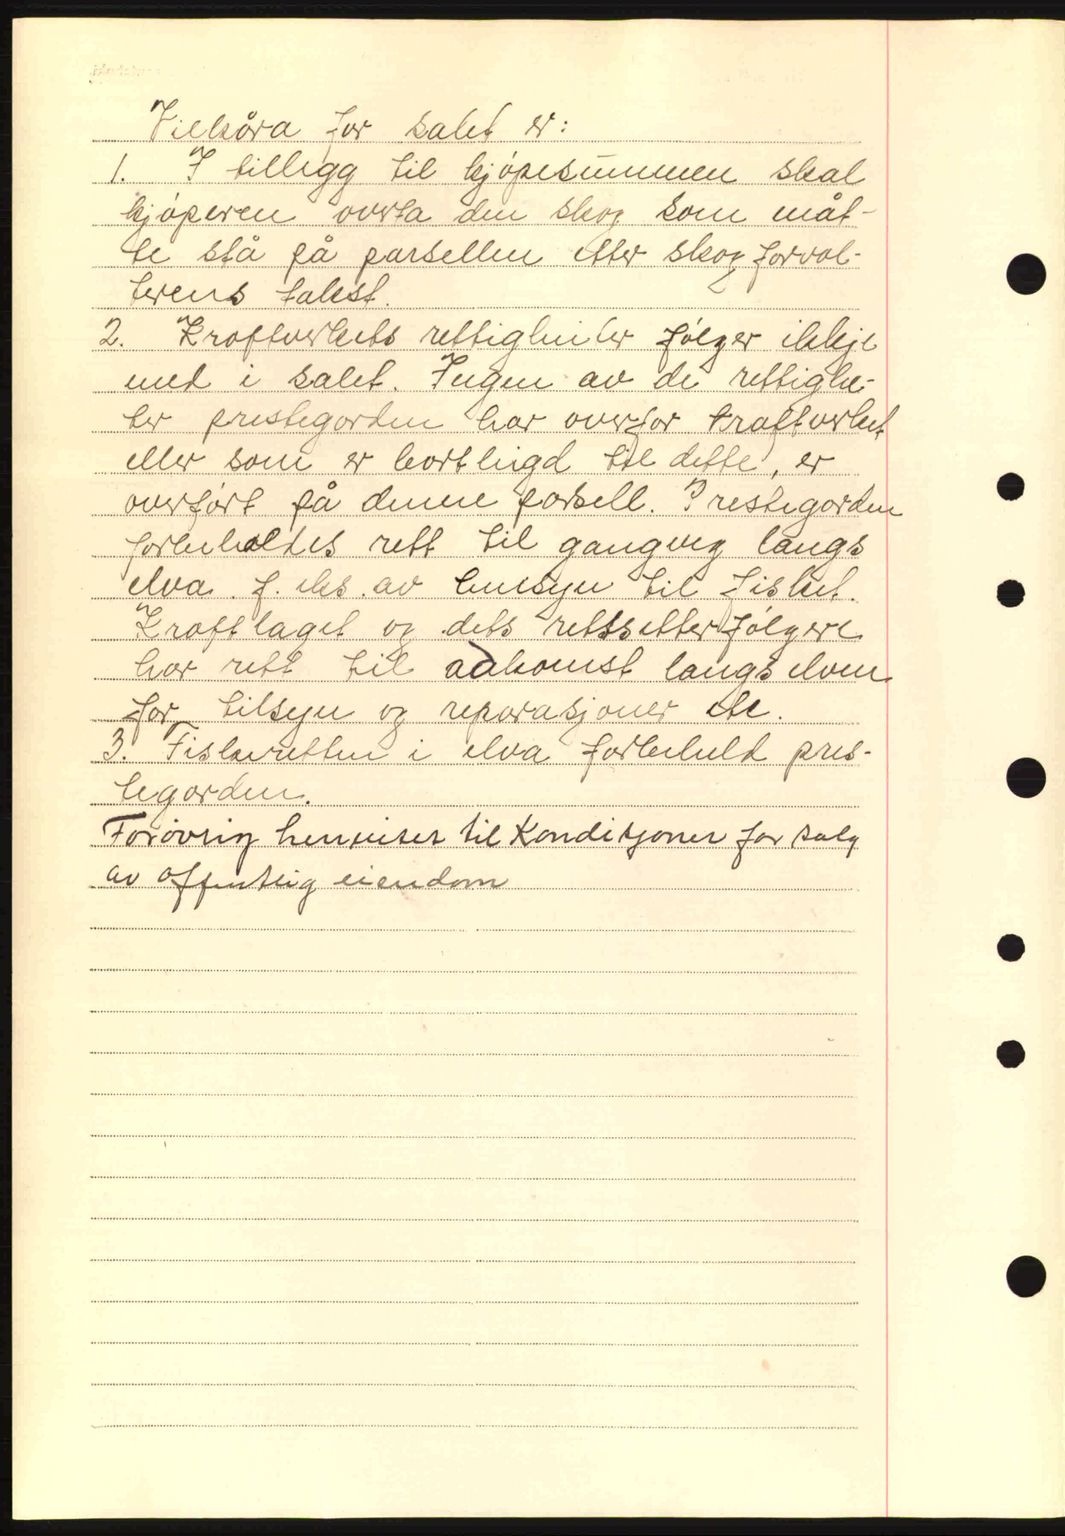 Vilkåra for salet er:
1. I tillegg til kjøpesummen skal
kjøperen overta den skog som måt-
te stå på parsellen etter skogforval-
terens takst.
2. Kraftverkets rettigheiter følger ikkje
med i salet. Ingen av de rettighe-
ter prestegarden har overfor kraftverket
eller som er bortleigd til dette, er
overført på denne parsell. Prestegarden
forbeholdes rett til gangveg langs
elva f. eks. av omsyn til fisket.
Kraftlaget og dets rettsetterfølgere
har rett til adkomst langs elven
for tilsyn og reparasjoner etc.
3. Fiskeretten i elva forbeheld pres-
tegarden.
Forøvrig henvises til Kondisjoner for salg
av offentlig eiendom